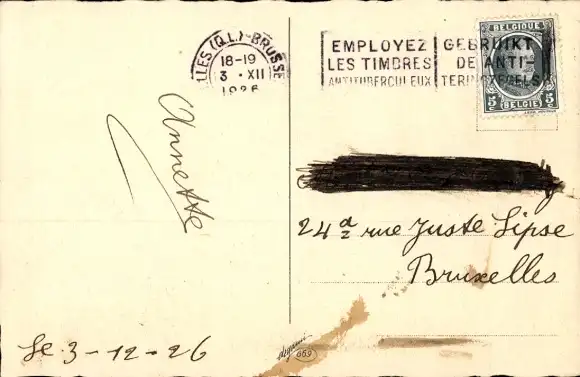 LLES (Q.L.)-BRUSSE
18-19
3 · XII
1926
EMPLOYEZ
LES TIMBRES
ANTITUBERCULEUX
GEBRUIKT
DE ANTI-
TERINGZEGELS
BELGIQUE
5 5
BELGIË
Annette
24 d/2 rue Juste Lipse
Bruxelles
Le 3-12-26
669